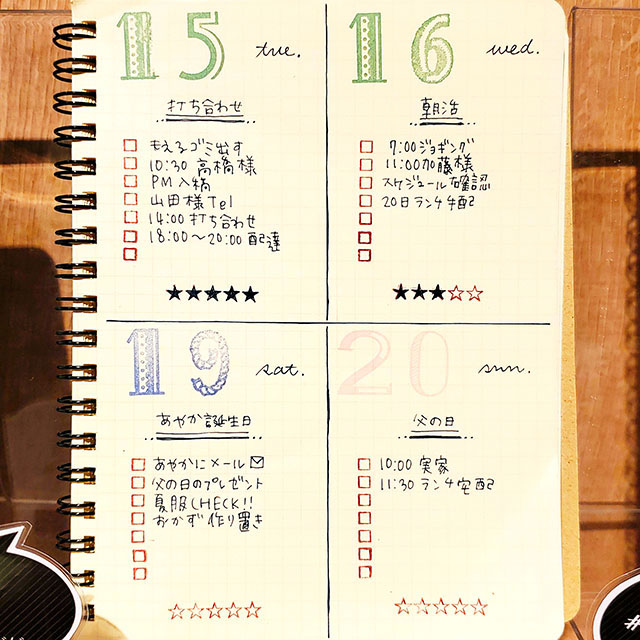 15 tue.
打ち合わせ
もえるゴミ出す
10:30 高橋様
PM入稿
山田様Tel
14:00 打ち合わせ
18:00〜20:00 配達
★★★★★
16 wed.
朝活
7:00ジョギング
11:00加藤様
スケジュール確認
20日ランチ手配
★★★☆☆
19 sat.
あやか誕生日
あやかにメール✉
父の日のプレゼント
夏服CHECK!!
おかず作り置き
☆☆☆☆☆
20 sun.
父の日
10:00 実家
11:30 ランチ宅配
☆☆☆☆☆
#